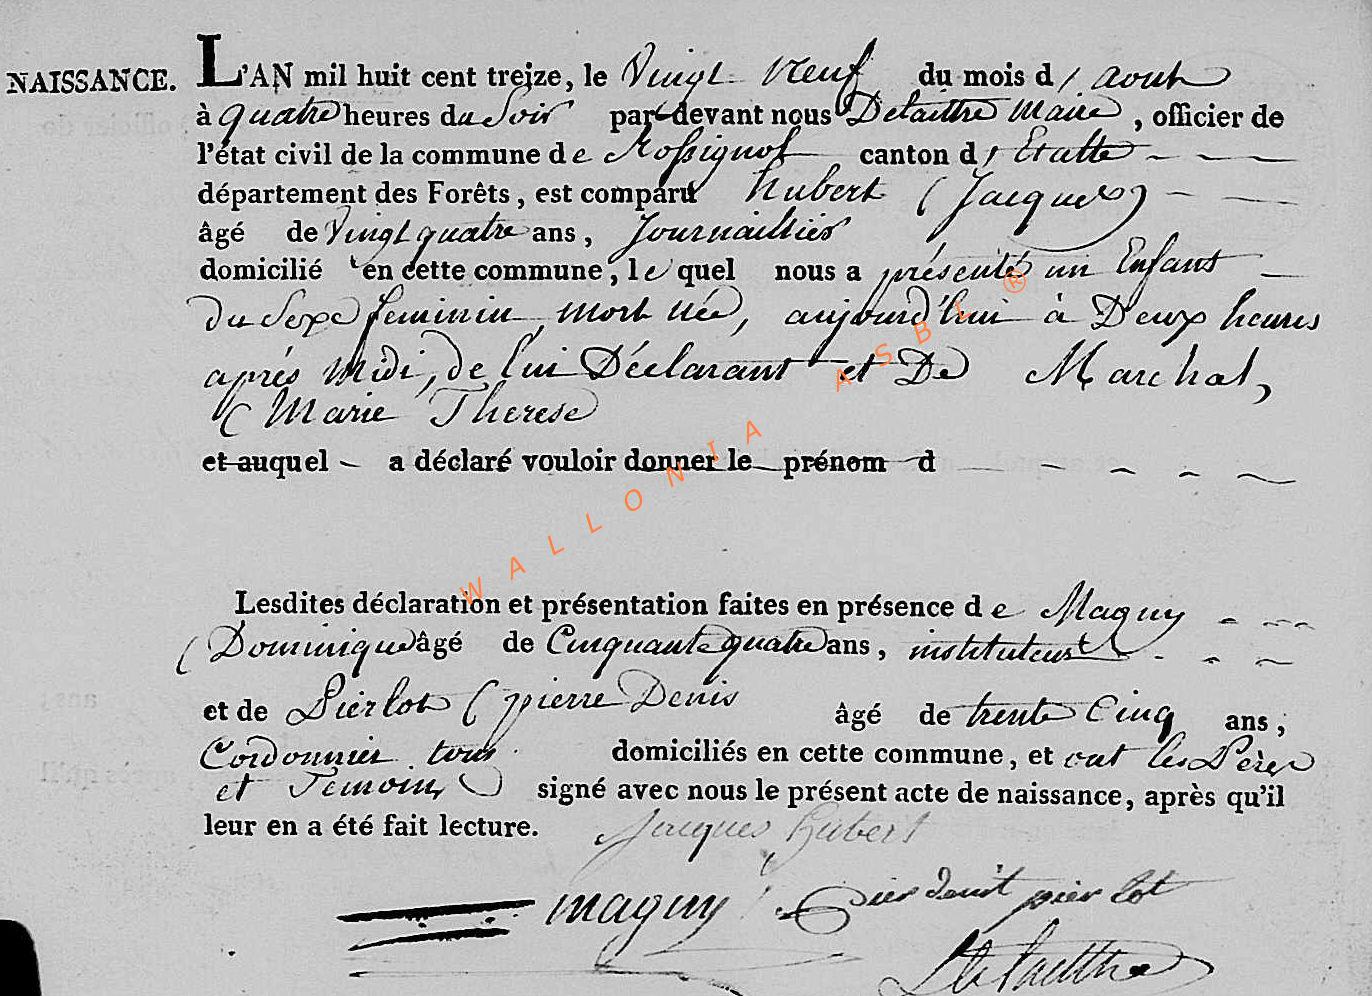 NAISSANCE. L'AN mil huit cent treize, le Vingt neuf du mois d' aout
à quatre heures du Soir par-devant nous Delaittre Maire, officier de
l'état civil de la commune de Rossignol canton d' Etalle
département des Forêts, est comparu hubert (Jacques)
âgé de Vingt quatre ans, Journaillier
domicilié en cette commune, le quel nous a présenté un Enfant
du Sexe feminin, mort née, aujourd'hui à Deux heures
après Midi, de lui Déclarant et De Marchal,
(Marie Therese
et auquel a déclaré vouloir donner le prénom d
WALLONIA ASBL ®
Lesdites déclaration et présentation faites en présence de Maguy
(Dominique âgé de Cinquante quatre ans, instituteur
et de Pierlot (pierre Denis âgé de trente Cinq ans,
Cordonnier tous domiciliés en cette commune, et ont les Père
et Temoins signé avec nous le présent acte de naissance, après qu'il
leur en a été fait lecture. Jacques hubert
maguy pier denit pier lot
Delaittre